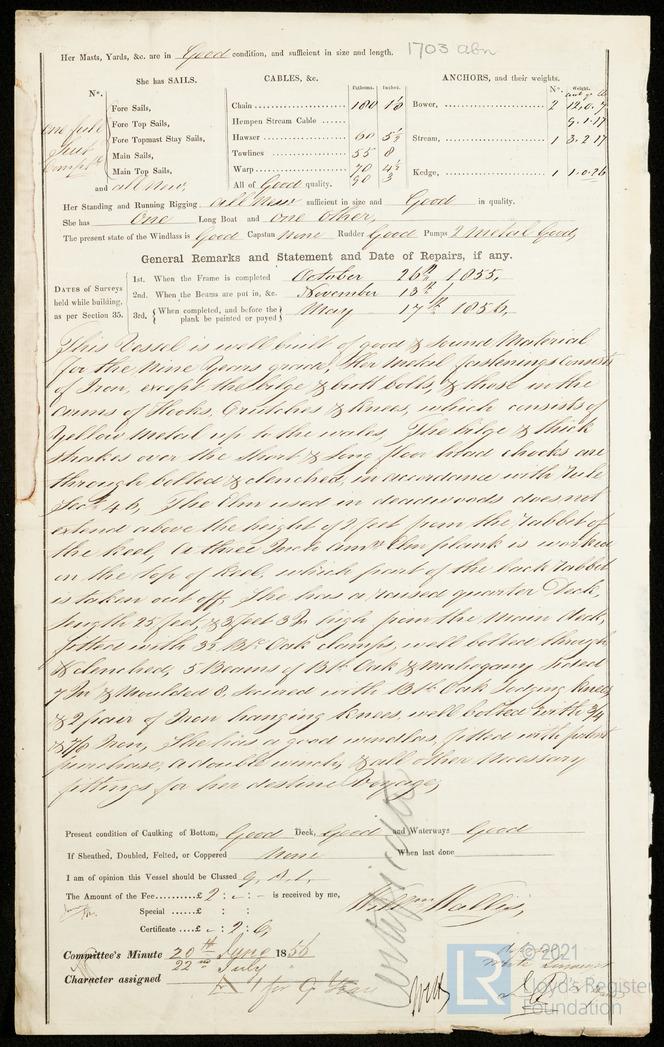 Her Masts, Yards, &c. are in Good condition, and sufficient in size and length. 1703 abn
She has SAILS. CABLES, &c. ANCHORS, and their weights.
N°. Fathoms. Inches. N°. Weight.
Fore Sails, Chain 180 Bower, 2 12.0.7
Fore Top Sails, Hempen Stream Cable 9.1.17
one full
Fore Topmast Stay Sails, Hawser 60 Stream, 1 3.2.17
suit
Main Sails, Towlines 55 8
Main Top Sails, Warp 70 4½ Kedge, 1 1.0.26
90 3
and all New, All of Good quality.
Her Standing and Running Rigging all New sufficient in size and Good in quality.
She has One Long Boat and one other,
The present state of the Windlass is Good Capstan None Rudder Good Pumps 2 Metal Good,
General Remarks and Statement and Date of Repairs, if any.
DATES of Surveys held while building, as per Section 35.
1st. When the Frame is completed October 26th 1855,
2nd. When the Beams are put in, &c. November 13th
3rd. When completed, and before the plank be painted or payed May 17th 1856,
This Vessel is well built of good & sound Material
for the Nine Years grade, Her Metal fastenings consists
of Iron, except the bilge & butt bolts, & those in the
arms of Hooks, Crutches & Knees, which consists of
Yellow Metal up to the wales, The bilge & thick
strakes over the short & long floor head chocks are
through bolted & clenched, in accordance with Rule
Sect. 46, The Elm used in deadwoods does not
extend above the height of 2 feet from the rabbet of
the keel, A three Inch Elm plank is worked
on the top of keel, which part of the back rabbet
is taken out off, She has a raised quarter Deck,
length 25 feet, & 3 feet 3 In high from the Main deck,
fitted with Oak clamps, well bolted through
& clenched, 5 Beams of Oak & Mahogany sided
7 In & Moulded 8, secured with Oak Lodging Knees
& 2 pair of Iron hanging Knees, well bolted with 3/4
Iron, She has a good windlass, fitted with patent
purchase, a double winch, & all other Necessary
fittings for her destine Voyage,
Present condition of Caulking of Bottom, Good Deck, Good and Waterways Good
If Sheathed, Doubled, Felted, or Coppered None When last done
I am of opinion this Vessel should be Classed 9. A.1.
The Amount of the Fee £ 2 : – : – is received by me,
Special £ : :
Certificate £ – : 2 : 6
Certificate
Committee's Minute 20th June 1856
22nd July
Character assigned A 1 for 9 Years
© 2021
LR Lloyd's Register
Foundation